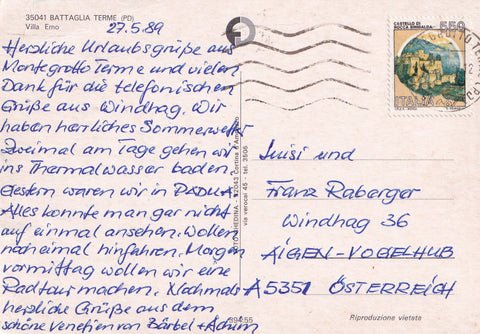 35041 BATTAGLIA TERME (PD)
Villa Emo
27.5.89
Herzliche Urlaubsgrüße aus
Montegrotto Terme und vielen
Dank für die telefonischen
Grüße aus Windhag. Wir
haben herrliches Sommerwetter
Zweimal am Tage gehen wir
ins Thermalwasser baden.
Gestern waren wir in PADUA.
Alles konnte man gar nicht
auf einmal ansehen. Wollen
nocheimal hinfahren. Morgen
vormittag wollen wir eine
Radtour machen. Nochmals
herzliche Grüße aus dem
schöne Venetien von Bärbel + Achim
CASTELLO DI
ROCCA SINIBALDA
550
ITALIA
Luisi und
Franz Raberger
Windhag 36
AIGEN-VOGELHUB
A 5351 ÖSTERREICH
Riproduzione vietata